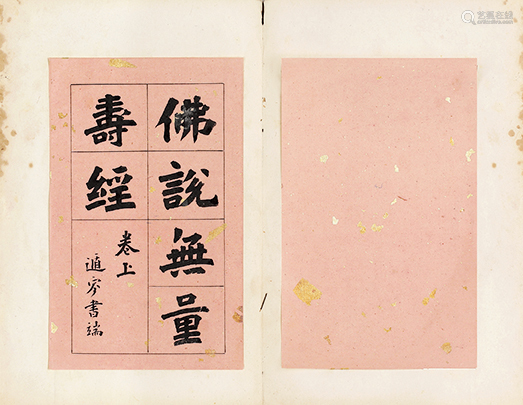 佛說無量
壽經
卷上
遁庵書端
艺狐在线